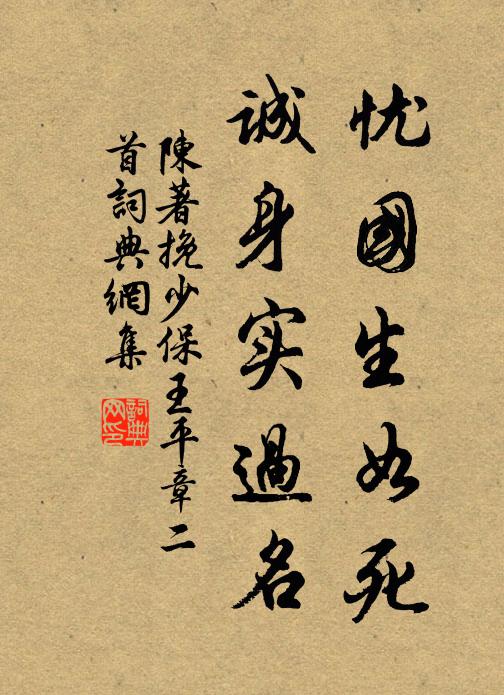 忧國生如死
诚身实過名
陳著挽少保王平章二
首詞典網集
詞典
网印